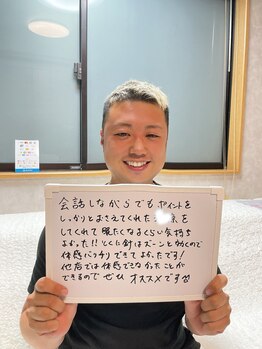 会話しながらでもポイントを
しっかりとおさえてくれた
をしてくれて眠たくなるくらい気持ち
よかった!!とくに針はズーンと効くので
体感バッチリできてよかったです!
他店では体感できなかったことが
できるのでぜひオススメです